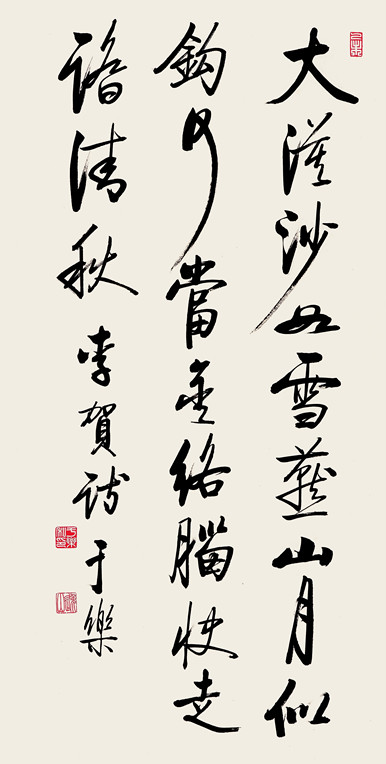 大漠沙如雪燕山月似
鈎何當金絡腦快走
踏清秋 李賀詩 于樂